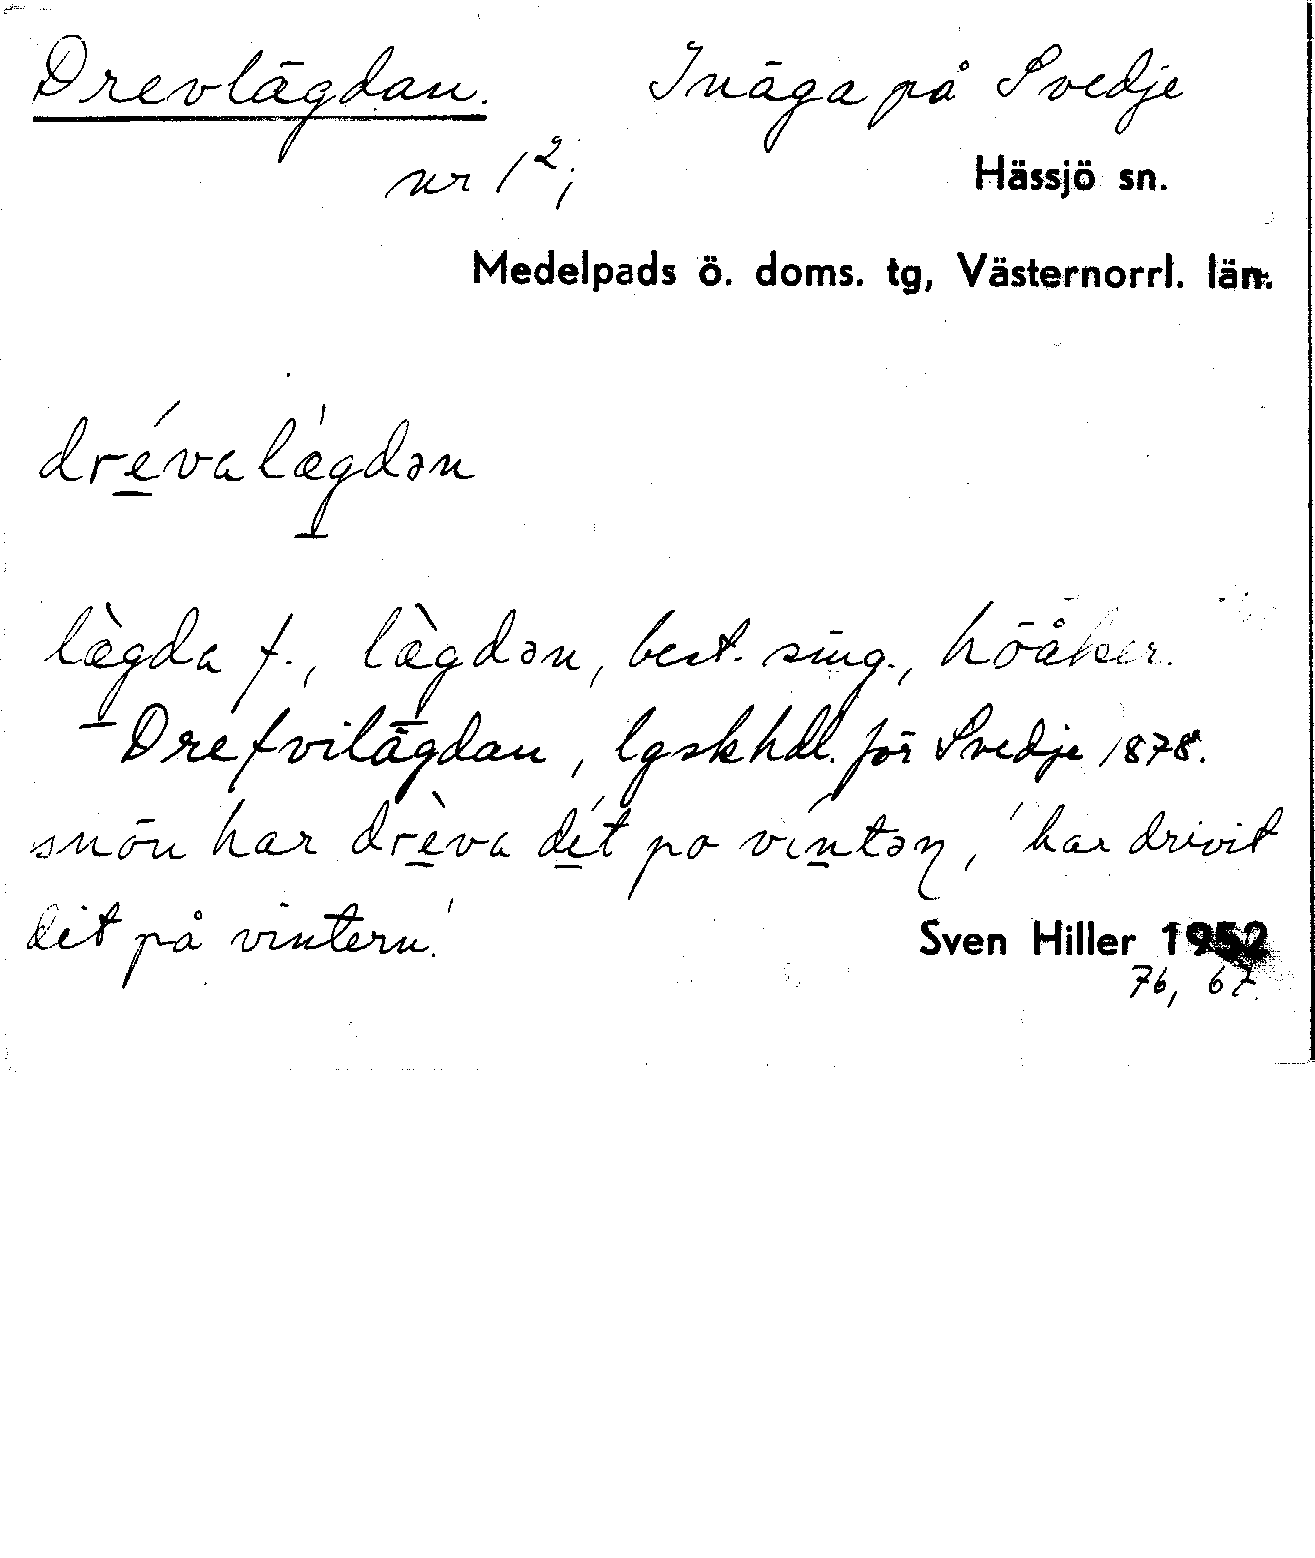 Drevlägdan. Inäga på Svedje
nr 1²; Hässjö sn.
Medelpads ö. doms. tg, Västernorrl. län.
drévalǽgdən
læ̀gda f., læ̀gdən, best. sing., höåker.
Drefvilägdan, lgskhdl. för Svedje 1878.
snön har drèva dít po víntəṇ, 'har drivit
dit på vintern.' Sven Hiller 1952
76, 67.